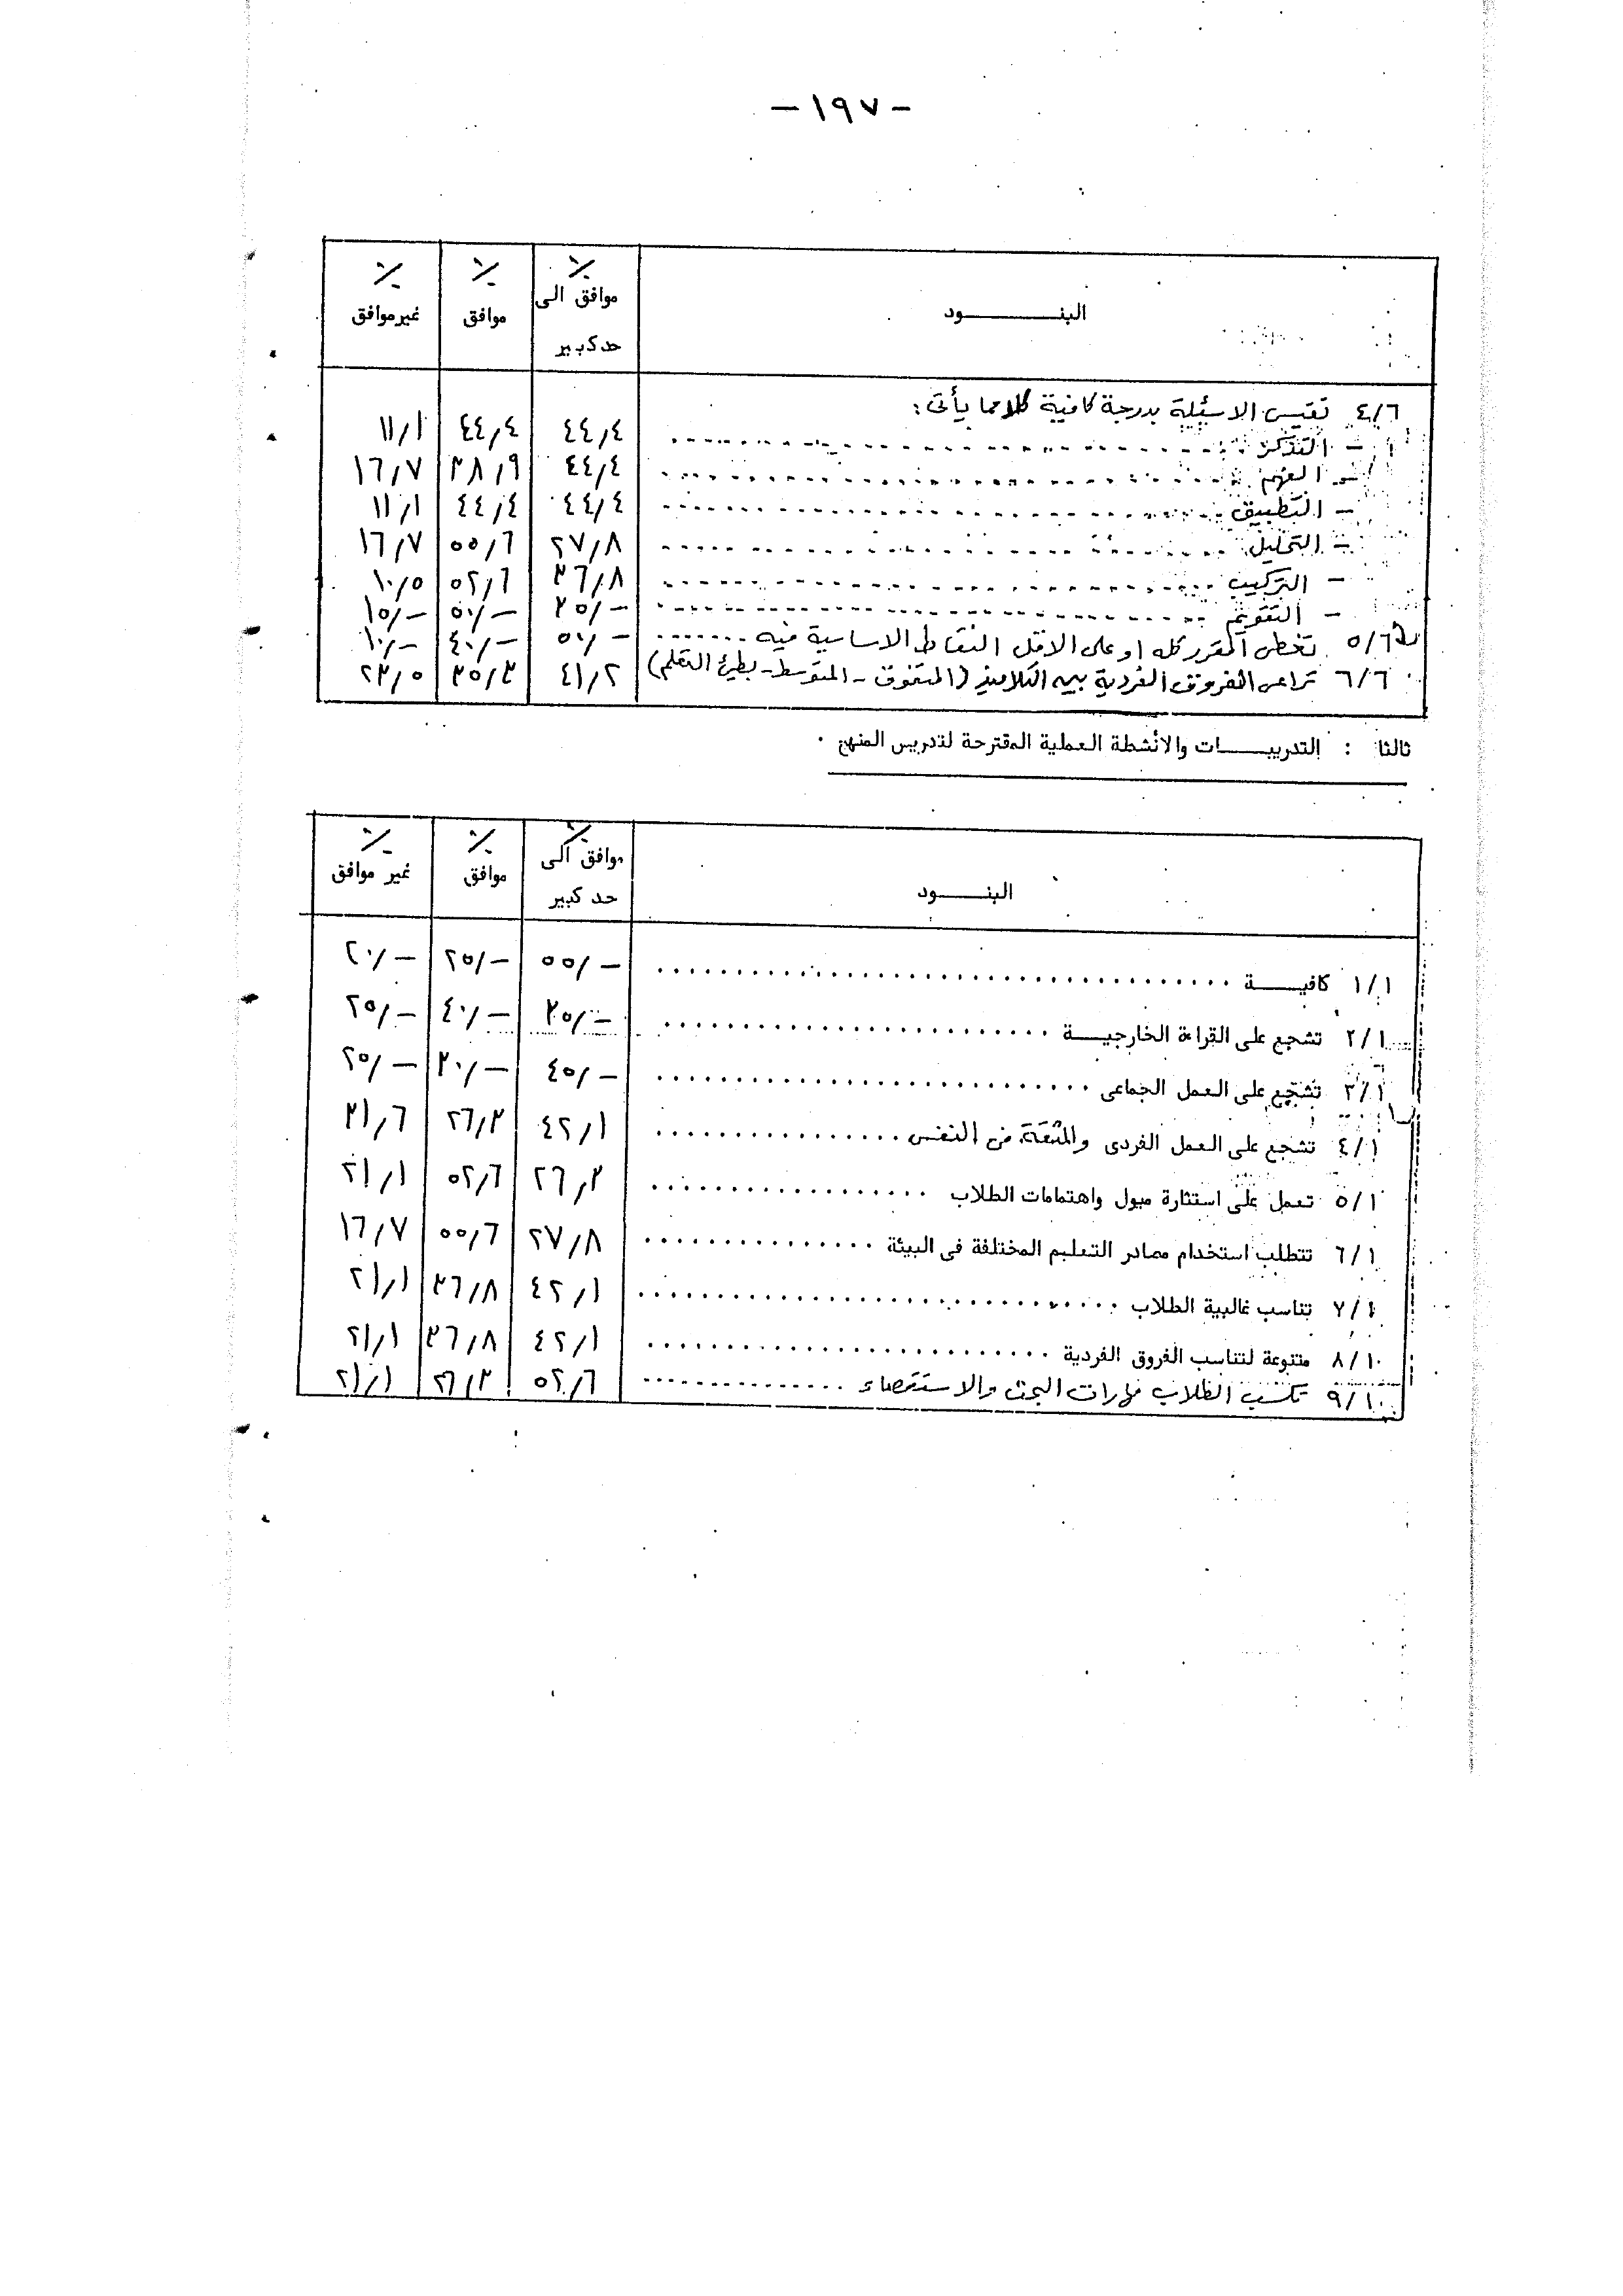 - ١٩٧ -
البنــــــود ٪ موافق الى حد كبير ٪ موافق ٪ غير موافق
٤/٦ تقيس الاسئلة بدرجة كافية كلا مما يأتى :
- التذكر ٤٤٫٤ ٤٤٫٤ ١١٫١
- الفهم ٤٤٫٤ ٣٨٫٩ ١٦٫٧
- التطبيق ٤٤٫٤ ٤٤٫٤ ١١٫١
- التحليل ٢٧٫٨ ٥٥٫٦ ١٦٫٧
- التركيب ٣٦٫٨ ٥٢٫٦ ١٠٫٥
- التقويم ٣٥٫- ٥٠٫- ١٥٫-
٥/٦ تغطى المقرر كله او على الاقل النقاط الاساسية فيه ٥٠٫- ٤٠٫- ١٠٫-
٦/٦ تراعى الفروق الفردية بين التلاميذ (المتفوق - المتوسط - بطئ التعلم) ٤١٫٢ ٣٥٫٣ ٢٣٫٥
ثالثا : التدريبـــات والأنشطة العملية المقترحة لتدريس المنهج .
البنــــود ٪ موافق الى حد كبير ٪ موافق ٪ غير موافق
١/١ كافيـــة ٥٥٫- ٢٥٫- ٢٠٫-
٢/١ تشجع على القراءة الخارجيـــة ٣٥٫- ٤٠٫- ٢٥٫-
٣/١ تشجع على العمل الجماعى ٤٥٫- ٣٠٫- ٢٥٫-
٤/١ تشجع على العمل الفردى والثقة فى النفس ٤٢٫١ ٢٦٫٣ ٣١٫٦
٥/١ تعمل على استثارة ميول واهتمامات الطلاب ٢٦٫٣ ٥٢٫٦ ٢١٫١
٦/١ تتطلب استخدام مصادر التعليم المختلفة فى البيئة ٢٧٫٨ ٥٥٫٦ ١٦٫٧
٧/١ تناسب غالبية الطلاب ٤٢٫١ ٣٦٫٨ ٢١٫١
٨/١ متنوعة لتناسب الفروق الفردية ٤٢٫١ ٣٦٫٨ ٢١٫١
٩/١ تكسب الطلاب مهارات البحث والاستقصاء ٥٢٫٦ ٢٦٫٣ ٢١٫١